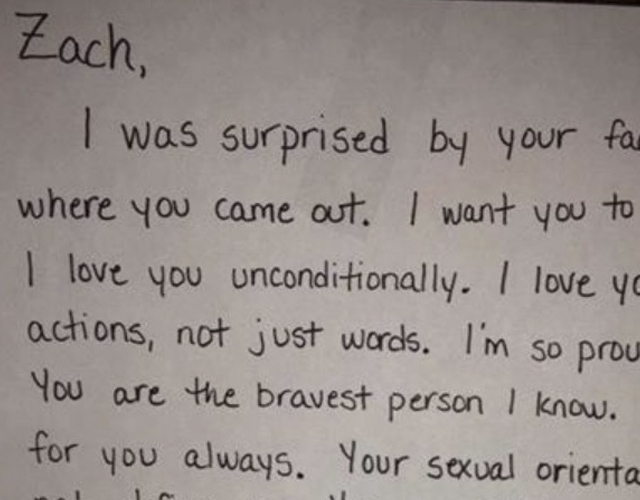 Zach,
I was surprised by your fa
where you came out. I want you to
I love you unconditionally. I love yo
actions, not just words. I'm so prou
You are the bravest person I know.
for you always. Your sexual orienta